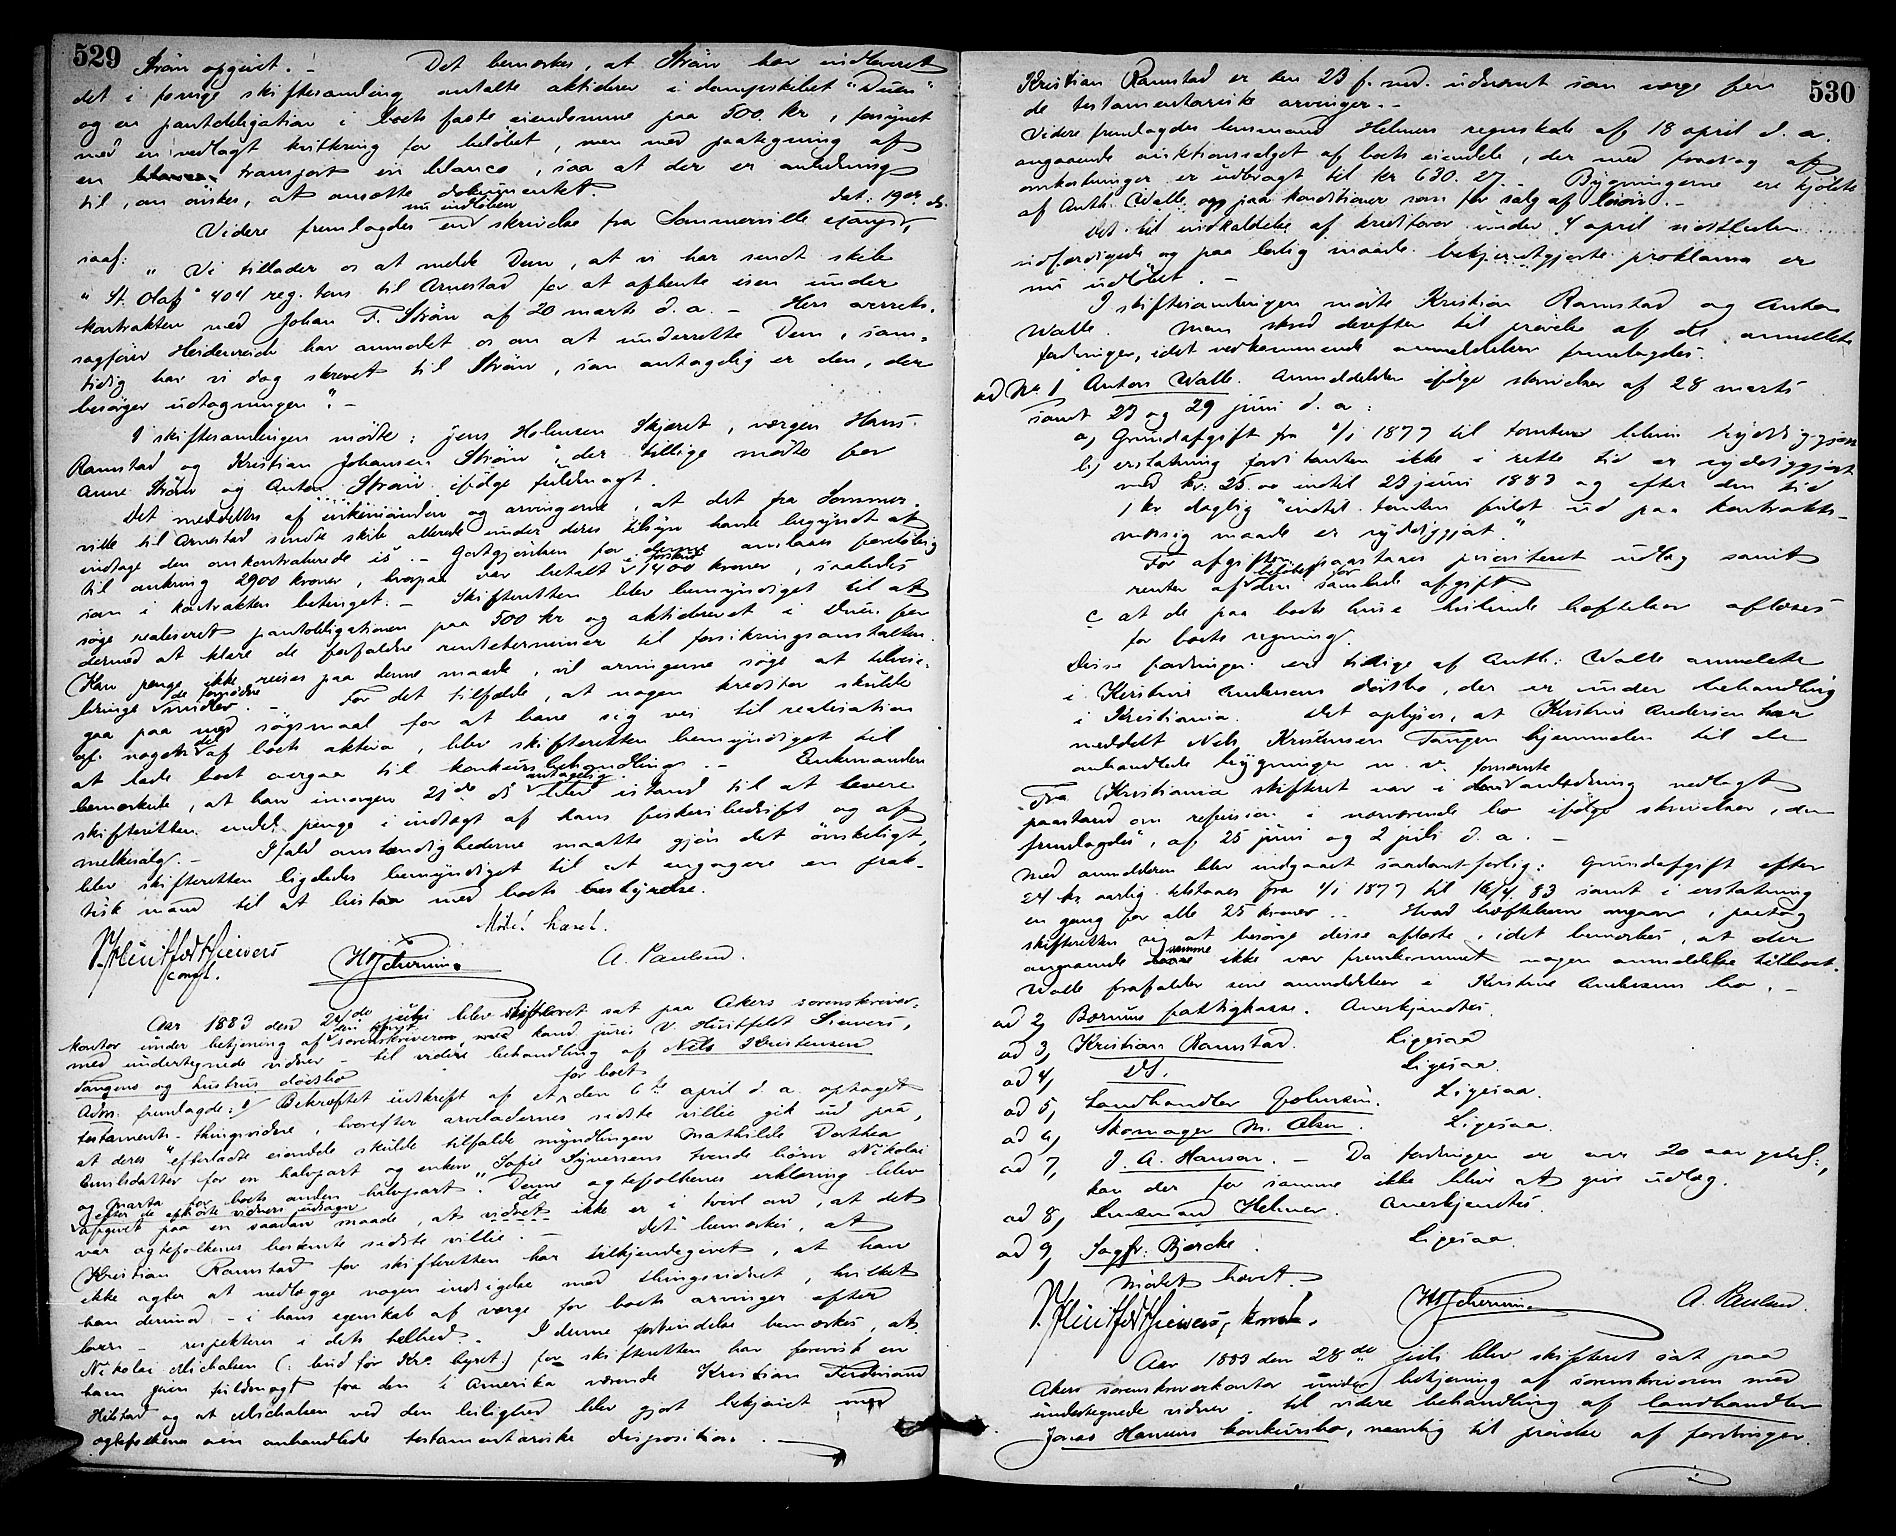 529
Strøm opgivet. - Det bemerkes, at Strøm har indleveret
det i forrige skiftesamling omtalte aktiebrev i dampskibet "Duen"
og en pantobligation i boets faste eiendomme paa 500 kr, forsynet
med en vedlagt kvittering for beløbet, men med paategning af
en transport in blanco, saa at der er anledning
til, om ønskes, at omsætte dokumentet.
Videre fremlagdes en nu indløben skrivelse fra Sommerville
saal: "Vi tillader os at melde Dem, at vi har sendt skib
"St. Olaf" 404 reg. tons til Arnestad for at afhente isen under
kontrakten med Johan F. Strøm af 20 marts d. a. - Herr overrets-
sagfører Heidenreich har anmodet os om at underrette Dem, sam-
tidig har vi dag skrevet til Strøm, som antagelig er den, der
besørger udtagningen". -
I skiftesamlingen mødte: Jens Holmsen Skjæret, værgen Hans
Ramstad og Kristian Johansen Strøm, der tillige mødte for
Anne Strøm og Anton Strøm ifølge fuldmagt.
Det meddeltes af enkemanden og arvingerne, at det fra Sommer-
ville til Arnestad sendte skib allerede under deres tilsyn havde begyndt at
indtage den omkontraherede is. - Godtgjørelsen for denne ansloges foreløbig
til omkring 2900 kroner, hvorpaa var betalt i forskud 1400 kroner, saaledes
som i kontrakten betinget. - Skifteretten blev bemyndiget til at
søge realiseret pantobligationen paa 500 kr og aktiebrevet i Duen for
dermed at klare de forfaldne renteterminer til forsikringsanstalten.
Kan penge ikke reises paa denne maade, vil arvingerne søge at tilveie-
bringe de fornødne midler. - For det tilfælde, at nogen kreditor skulde
gaa paa med søgsmaal for at bane sig vei til realisation
af nogen del af boets aktiva, blev skifteretten bemyndiget til
at lade boet overgaa til konkursbehandling. - Enkemanden
bemerkede, at han imorgen 21de ds antagelig blev istand til at levere
skifteretten endel penge i indtægt af hans fiskeribedrift og af
melkesalg. - Ifald omstændighederne maatte gjøre det ønskeligt,
blev skifteretten ligeledes bemyndiget til at engagere en prak-
tisk mand til at bistaa med boets bestyrelse.
Mødet hævet.
V. Huitfeldt Sievers
const.
A. Paulsen.
Aar 1883 den 24de juli blev skifteret sat paa Akers sorenskriver-
kontor under betjening af den konst. sorenskriveren, cand. juris V. Huitfeldt Sievers,
med undertegnede vidner - til videre behandling af Nils Kristensen
Tangens og hustrus dødsbo
Adm. fremlagde: 1/ Bekræftet udskrift af et for boet den 6te april d. a. optaget
testaments-thingsvidne, hvorefter arveladernes sidste villie gik ud paa,
at deres "efterladte eiendele skulde tilfalde myndlingen Mathilde Dorthea
Emilsdatter for en halvpart og enken Sofie Syversens tvende børn Nikolai
og Marta for boets anden halvpart". Denne ægtefolkenes erklæring blev
efter de afhørte vidners udsagn afgivet paa en saadan maade, at de vidnet ikke er i tvivl om, at det
var ægtefolkenes bestemte sidste villie. - Det bemerkes, at
Kristian Ramstad for skifteretten har tilkjendegivet, at han
ikke agter at nedlægge nogen indsigelse mod thingsvidnet, hvilket
han derimod - i hans egenskab af værge for boets arvinger efter
loven - respekterer i dets helhed. I denne forbindelse bemerkes, at
Nikolai Michalsen (: bud for Kra. byret) for skifteretten har forevist en
ham given fuldmagt fra den i Amerika værende Kristian Ferdinand
Hilstad og at Michalsen ved den leilighed blev gjort bekjendt med
ægtefolkenes oven anhandlede testamentariske disposition.
530
Kristian Ramstad er den 23 f. md. udnævnt som værge for
de testamentariske arvinger. -
Videre fremlagdes lensmand Helmers regnskab af 18 april d. a.
angaaende auktionssalget af boets eiendele, der med fradrag af
omkostninger er udbragt til kr 630.27. - Bygningerne ere kjøbte
af Anth. Walle og paa konditioner som for salg af løsøre. -
Det til indkaldelse af kreditorer under 4 april sidstleden
udfærdigede og paa lovlig maade bekjendtgjorte proklama er
nu udløbet. -
I skiftesamlingen mødte Kristian Ramstad og Anton
Walle. Man skred derefter til prøvelse af de anmeldte
fordringer, idet vedkommende anmeldelser fremlagdes.
ad No. 1 Anton Walle. Anmeldelsen ifølge skrivelser af 28 marts
samt 23 og 29 juni d. a:
a) Grundafgift fra 1/1 1877 til tomten bliver ryddiggjort
b) erstatning fordi tomten ikke i rette tid er ryddiggjort
med kr. 25.00 indtil 23 juni 1883 og efter den tid
1 kr daglig "indtil tomten fuldt ud paa kontrakts-
mæssig maade er ryddiggjort."
For afgiften paastaaes prioriteret udlæg samt
renter af beløbet for den samlede afgift.
c at de paa boets huse hvilende hæftelser afløses
for boets regning.
Disse fordringer er tidlige af Anth. Walle anmeldte
i Kirstine Andersens dødsbo, der er under behandling
i Kristiania. Det oplyses, at Kirstine Andersen har
meddelt Nils Kristensen Tangen hjemmelen til de
anhandlede bygninger m. v.
Fra Kristiania skifteret var i fornævnte anledning nedlagt
paastand om refusion i nærværende bo ifølge skrivelser, der
fremlagdes, af 25 juni og 2 juli d. a. -
Med anmelderen blev indgaaet saadant forlig: Grundafgift efter
24 kr aarlig tilstaaes fra 1/1 1877 til 16/4 83 samt i erstatning
en gang for alle 25 kroner. - Hvad hæftelserne angaar, paatog
skifteretten sig at besørge disse afløste, idet bemerkes, at der
angaaende samme ikke var fremkommet nogen anmeldelse til boet.
Walle frafalder sine anmeldelser i Kirstine Andersens bo. -
ad 2, Bærums fattigkasse. Anerkjendtes.
ad 3, Kristian Ramstad. Ligesaa
ad 4, Ds. Ligesaa.
ad 5, Landhandler Johnsen. Ligesaa.
ad 6, Skomager M. Olsen. Ligesaa.
ad 7, J. A. Hansen. - Da fordringen er over 20 aar gml.,
kan der for samme ikke blive at give udlæg.
ad 8, Lensmand Helmer. Anerkjendtes.
ad 9, Sagfr. Bjercke. Ligesaa.
Mødet hævet.
V. Huitfeldt Sievers, konst.
A. Paulsen.
Aar 1883 den 28de juli blev skifteret sat paa
Akers sorenskriverkontor under betjening af sorenskriveren med
undertegnede vidner til videre behandling af landhandler
Jonas Hansens konkursbo, nemlig til prøvelse af fordringer.